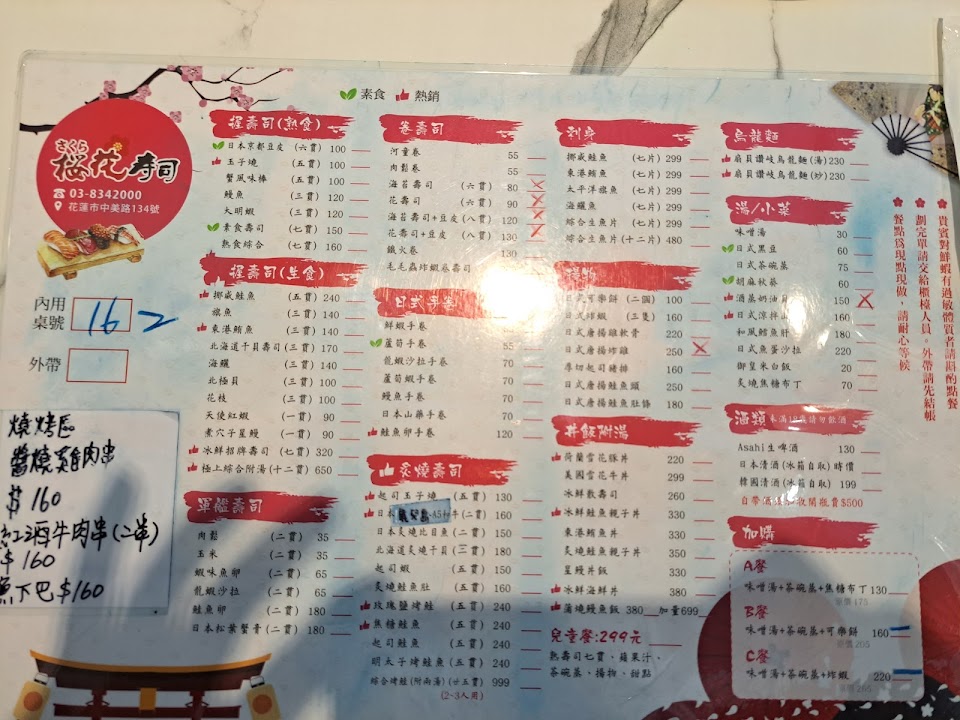 素食 熱銷
さくら
桜花寿司
03-8342000
花蓮市中美路134號
內用
桌號
16-2
外帶
燒烤區
醬燒雞肉串
$160
紅酒牛肉串(二串)
160
魚下巴$160
握壽司(熟食)
日本京都豆皮 (六貫) 100
玉子燒 (五貫) 100
蟹風味棒 (五貫) 100
鰻魚 (三貫) 120
大明蝦 (三貫) 120
素食壽司 (七貫) 150
熟食綜合 (七貫) 160
握壽司(生食)
挪威鮭魚 (五貫) 240
旗魚 (三貫) 140
東港鮪魚 (三貫) 140
北海道干貝壽司 (三貫) 170
海鱺 (三貫) 140
北極貝 (三貫) 100
花枝 (三貫) 100
天使紅蝦 (一貫) 90
煮穴子星鰻 (一貫) 90
冰鮮招牌壽司 (七貫) 320
極上綜合附湯(十二貫) 650
軍艦壽司
肉鬆 (二貫) 35
玉米 (二貫) 35
蝦味魚卵 (二貫) 65
龍蝦沙拉 (二貫) 65
鮭魚卵 (二貫) 180
日本松葉蟹膏 (二貫) 180
卷壽司
河童卷 55
肉鬆卷 55
海苔壽司 (六貫) 80
花壽司 (六貫) 90
海苔壽司+豆皮 (八貫) 120
花壽司+豆皮 (八貫) 130
鐵火卷
毛毛蟲炸蝦卷壽司
日式手卷
鮮蝦手卷
蘆筍手卷 55
龍蝦沙拉手卷 70
蘆筍蝦手卷 70
鰻魚手卷 70
日本山藥手卷 70
鮭魚卵手卷 120
炙燒壽司
起司玉子燒 (五貫) 130
日本 A5和牛 (二貫) 160
日本炙燒比目魚 (二貫) 150
北海道炙燒干貝 (三貫) 180
起司蝦 (五貫) 150
炙燒鮭魚肚 (五貫) 160
玫瑰鹽烤鮭 (五貫) 240
焦糖鮭魚 (五貫) 240
起司鮭魚 (五貫) 240
明太子烤鮭魚 (五貫) 240
綜合烤鮭(附兩湯) (廿五貫) 999
(2-3人用)
刺身
挪威鮭魚 (七片) 299
東港鮪魚 (七片) 299
太平洋旗魚 (七片) 299
海鱺魚 (七片) 299
綜合生魚片 (七片) 299
綜合生魚片(十二片) 480
揚物
日式可樂餅 (二個) 100
日式炸蝦 (三隻) 160
日式唐揚雞軟骨 220
日式唐揚炸雞 250
厚切起司豬排 160
日式唐揚鮭魚頭 250
日式唐揚鮭魚肚條 180
丼飯附湯
荷蘭雪花豚丼 220
美國雪花牛丼 299
冰鮮散壽司 260
冰鮮鮭魚親子丼 330
東港鮪魚丼 330
炙燒鮭魚親子丼 350
星鰻丼飯 330
冰鮮海鮮丼 380
蒲燒鰻魚飯 380 加量699
兒童餐:299元
熟壽司七貫、蘋果汁、
茶碗蒸、揚物、甜點
烏龍麵
扇貝讚岐烏龍麵(湯)230
扇貝讚岐烏龍麵(炒)230
湯/小菜
味噌湯 30
日式黑豆 60
日式茶碗蒸 75
胡麻秋葵 60
酒蒸奶油貝 150
日式涼拌 160
和風鱈魚肝 180
日式魚蛋沙拉 220
御皇米白飯 20
炙燒焦糖布丁 70
酒類 未滿18歲請勿飲酒
Asahi生啤酒 130
日本清酒(冰箱自取) 時價
韓國清酒(冰箱自取) 199
自帶酒 收開瓶費$500
加購
A餐
味噌湯+茶碗蒸+焦糖布丁130
原價175
B餐
味噌湯+茶碗蒸+可樂餅 160
原價205
C餐
味噌湯+茶碗蒸+炸蝦 220
原價265
貴賓對鮮蝦有過敏體質者請斟酌點餐
劃完單請交給櫃檯人員。外帶請先結帳
餐點為現點現做，請耐心等候